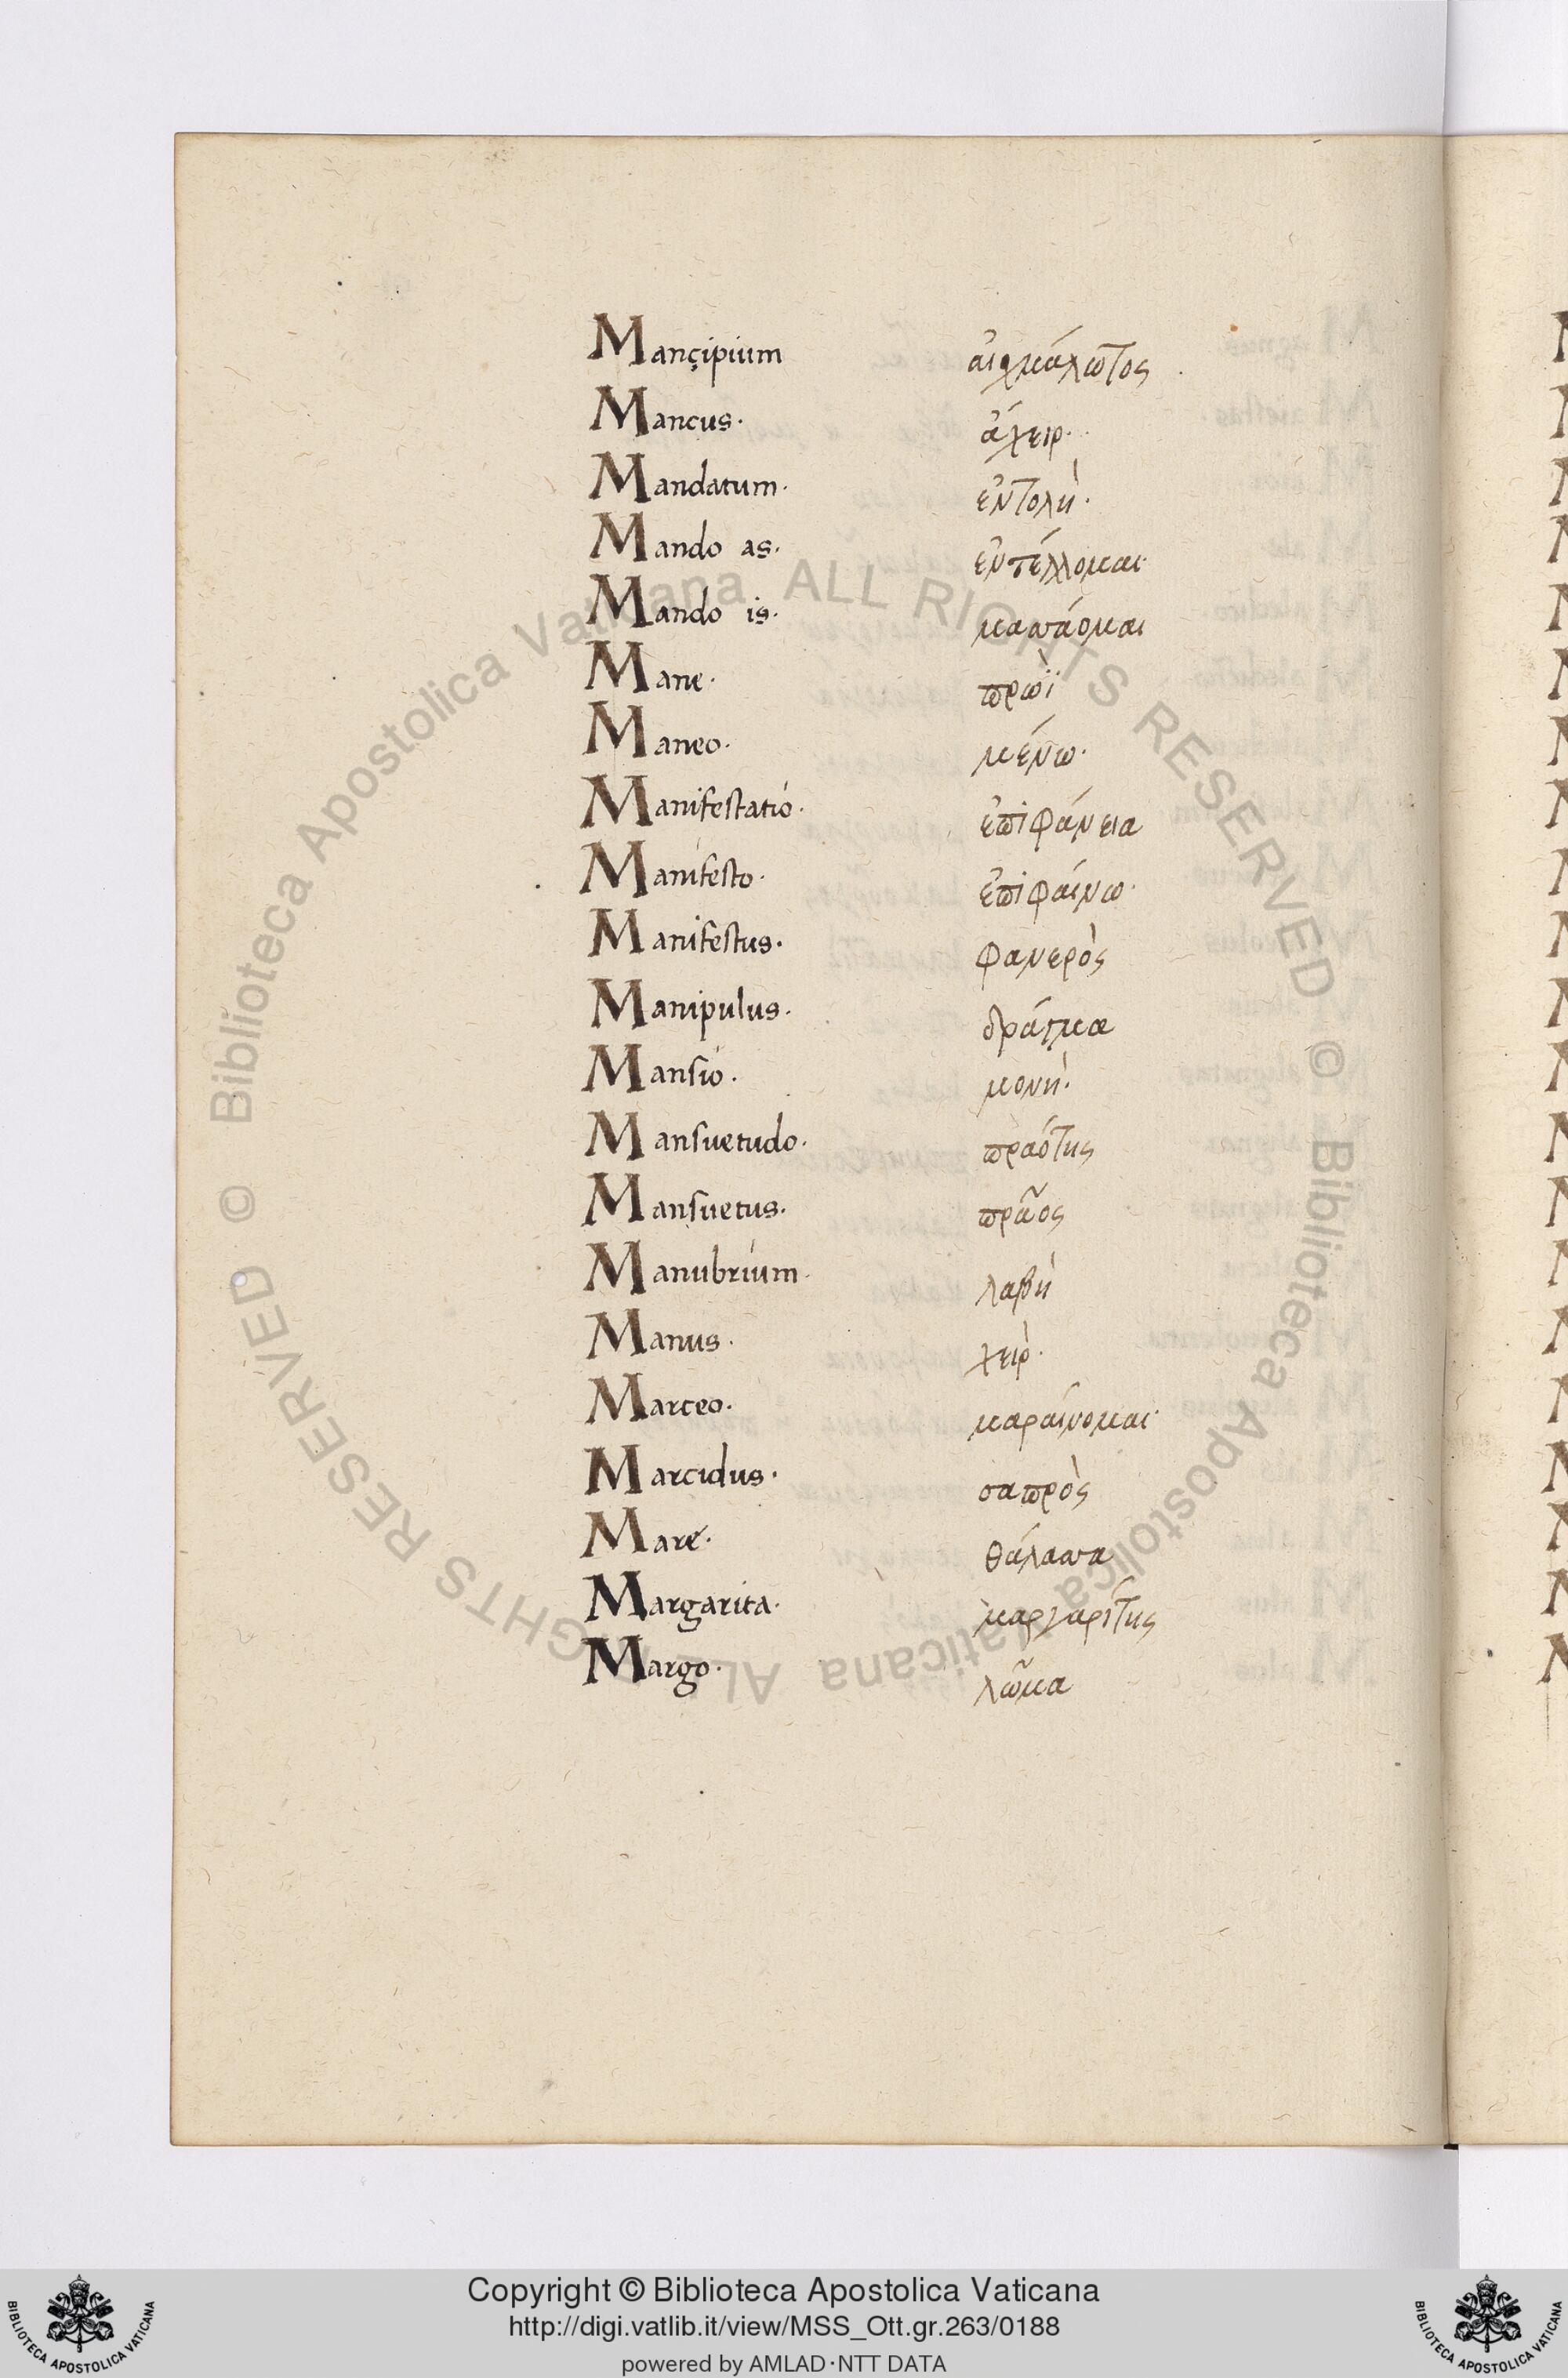 Mançipium αἰχμάλωτος.
Mancus. ἄχειρ.
Mandatum. ἐντολὴ.
Mando as. ἐντέλλομαι.
Mando is. μασσάομαι
Mane. πρωὶ̈
Maneo. μένω.
Manifestatio. ἐπιφάνεια
Manifesto. ἐπιφαίνω.
Manifestus. φανερὸς
Manipulus. δράγμα
Mansio. μονὴ.
Mansuetudo. πραότης
Mansuetus. πρᾶος
Manubrium. λαβὴ
Manus. χεὶρ.
Marceo. μαραίνομαι.
Marcidus. σαπρὸς
Mare. θάλασσα
Margarita. μαργαρίτης
Margo. λῶμα
© Biblioteca Apostolica Vaticana ALL RIGHTS RESERVED
© Biblioteca Apostolica Vaticana ALL RIGHTS RESERVED
Copyright © Biblioteca Apostolica Vaticana
http://digi.vatlib.it/view/MSS_Ott.gr.263/0188
powered by AMLAD·NTT DATA
BIBLIOTECA APOSTOLICA VATICANA
BIBLIOTECA APOSTOLICA VATICANA